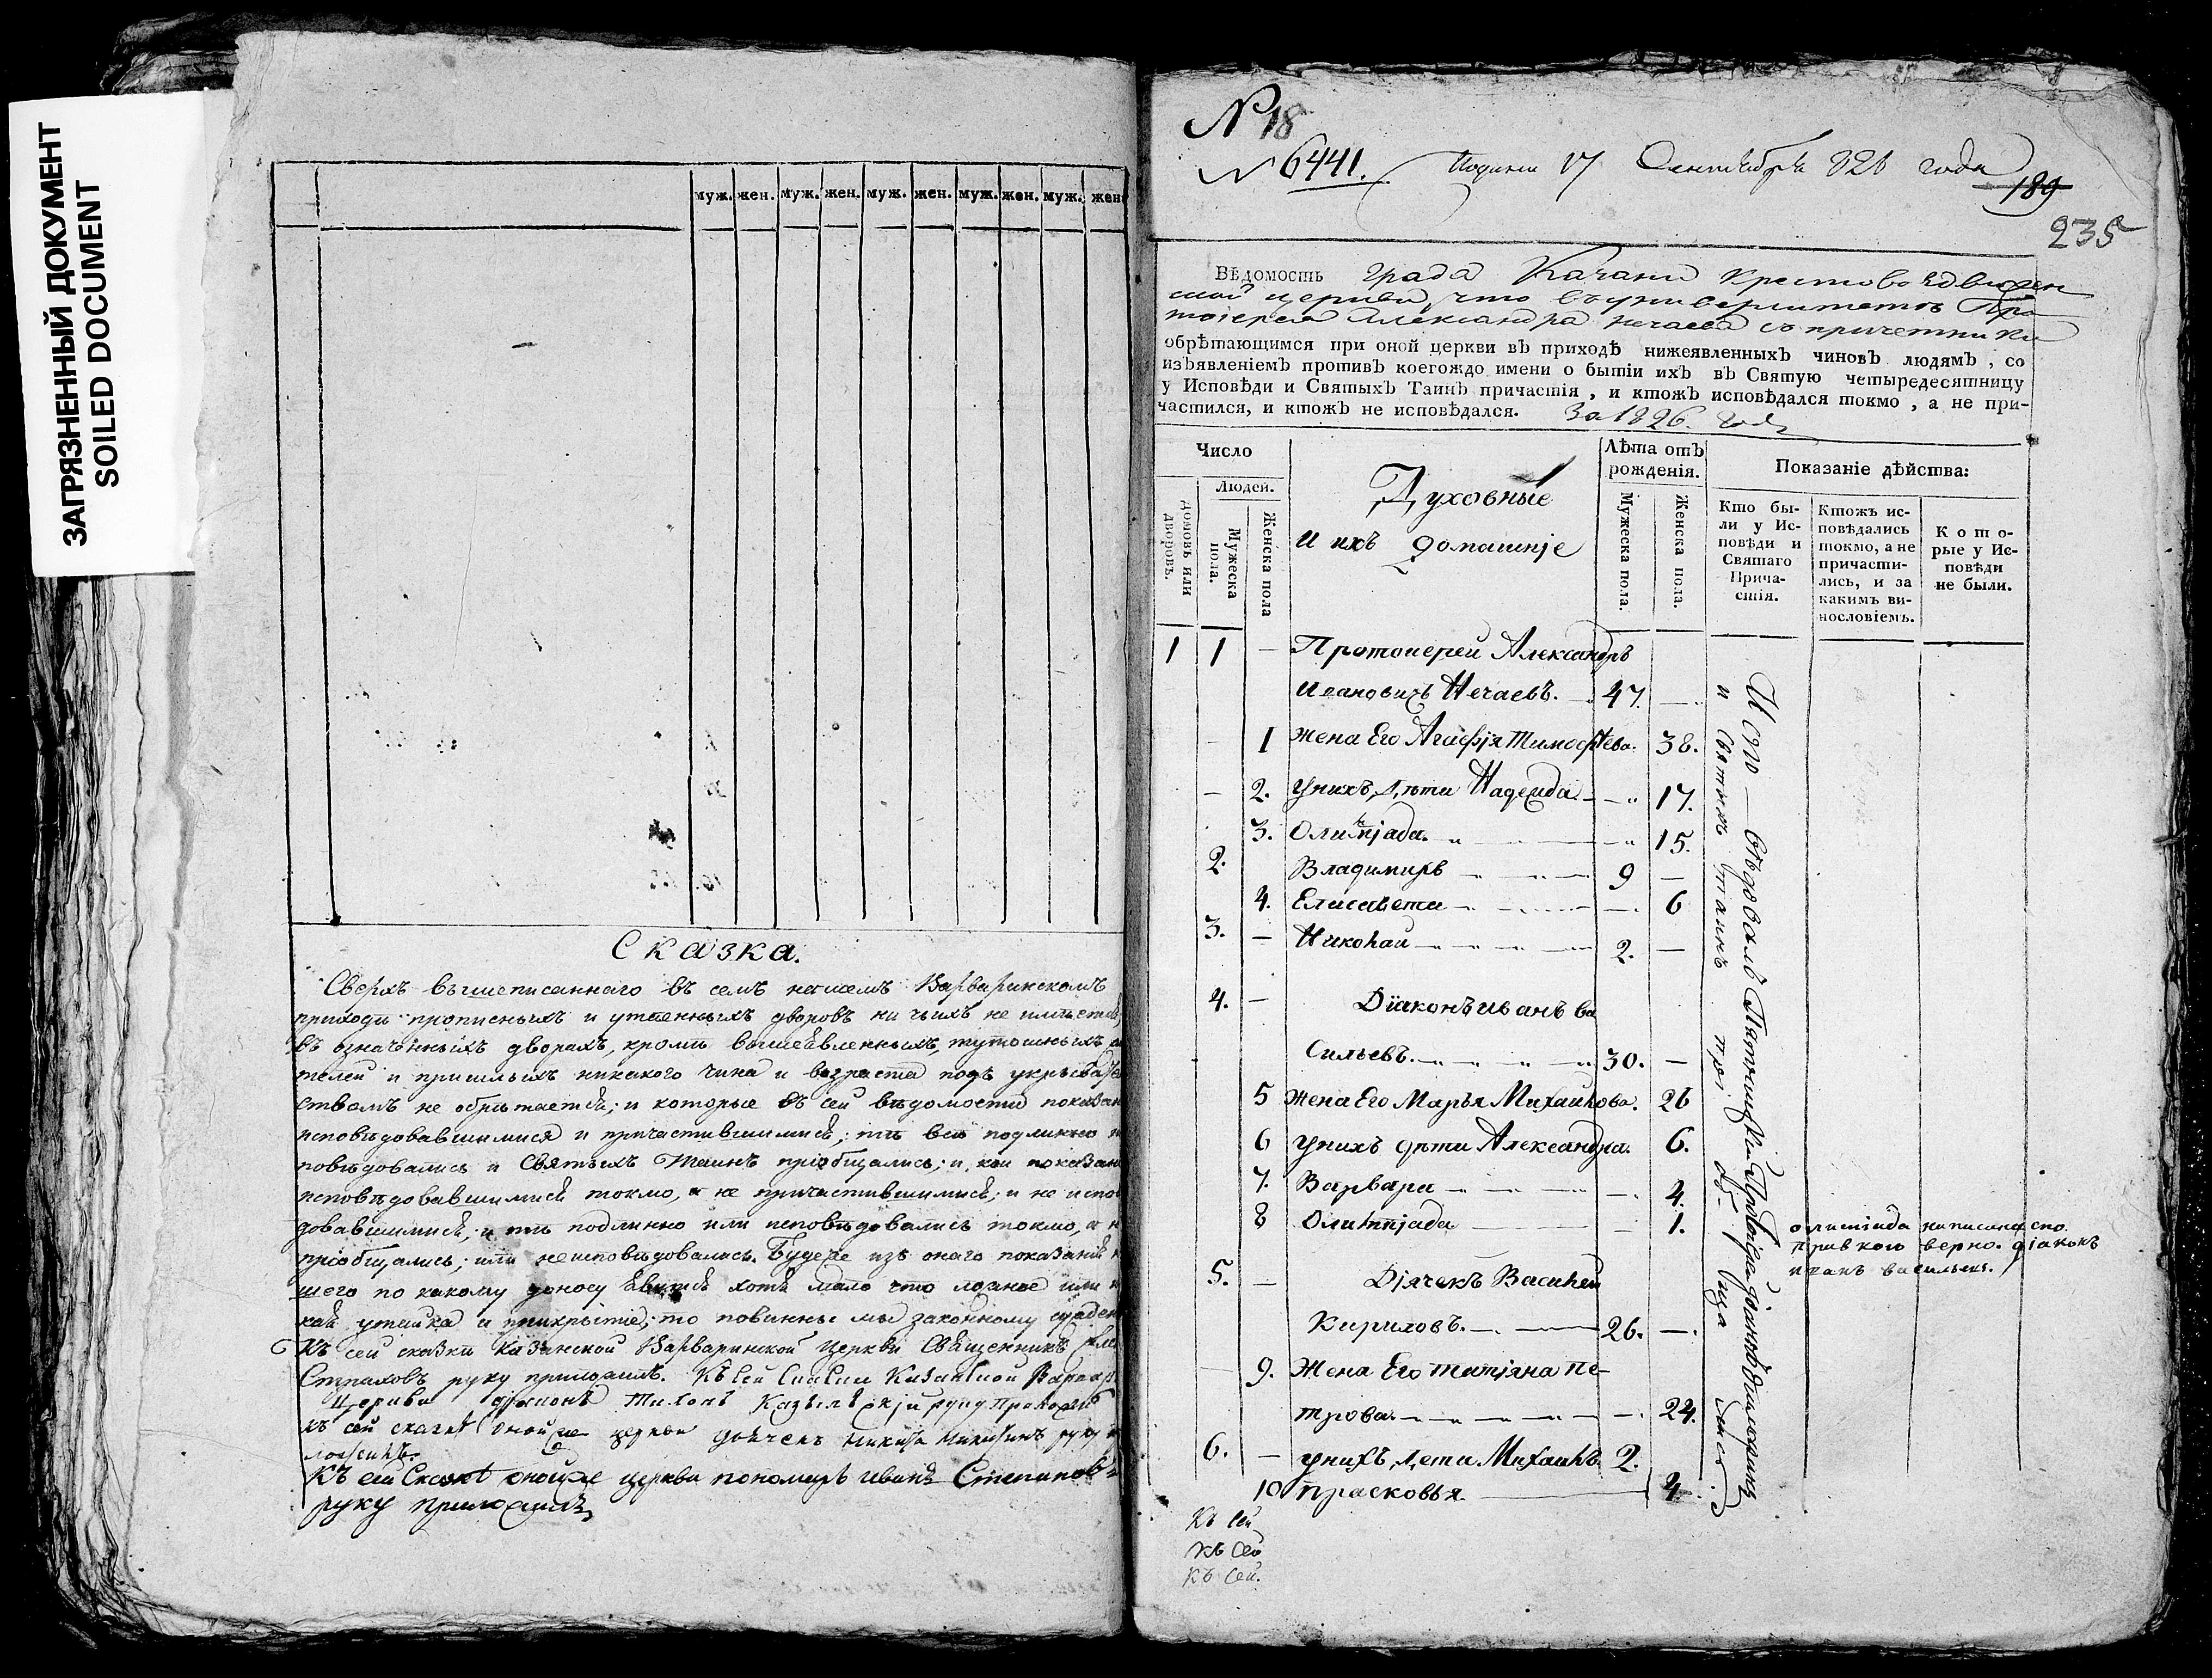 ЗАГРЯЗНЕННЫЙ ДОКУМЕНТ
SOILED DOCUMENT
муж. жен. муж. жен. муж. жен. муж. жен. муж. жен
Сказка.
Сверхъ вышеписаннаго въ семъ нашемъ Варваринскомъ
приходѣ прописныхъ и утаенныхъ дворовъ ни чьихъ не имѣется
въ означенныхъ дворахъ, кромѣ вышеявленныхъ, тутошныхъ
телей и пришлыхъ никакого чина и возраста подъ укрыва
ствомъ не обрѣтается; и которые въ сей вѣдомости показан
исповѣдовавшимися и причастившимися; тѣ всѣ подлинно
повѣдовались и Святыхъ Таинъ пріобщались; и кои показан
исповѣдовавшимися токмо, а не причастившимися; и не испо
довавшимися, и тѣ подлинно или исповѣдовались токмо, а н
пріобщались; или неисповѣдовались. Будеже изъ онаго показанія
шего по какому доносу явится хотя мало что ложное или
кая утайка и прикрытіе; то повинны мы законному сужден
Къ сей сказки Казанской Варваринской Церкви Священникъ
Страховъ руку приложилъ. Къ сей Сказки Казанской Варвар
Церкви діаконъ Тихонъ руку Приложилъ
къ сей сказкѣ оной же церкви дьячекъ Никита Никитинъ руку
ложилъ.
Къ сей Сказкѣ оной же церкви пономарь Иванъ Степановъ
руку приложилъ
N 18
N 6441. Подана 17 Сентября 826 года
189
235
Вѣдомость града Казани Крестовоздвижен
ской церкви, что въ университетѣ Про
тоіерея Александра Нечаева съ причетники
обрѣтающимся при оной церкви въ приходѣ нижеявленныхъ чиновъ людямъ, со
изъявленіемъ противъ коегождо имени о бытіи ихъ въ Святую четыредесятницу
у Исповѣди и Святыхъ Таинъ причастія, и ктожъ исповѣдался токмо, а не при-
частился, и ктожъ не исповѣдался. За 1826. Годъ
Число
Людей.
домовъ или дворовъ.
Мужеска пола.
Женска пола
Духовные
и ихъ домашніе
Лѣта отъ рожденія.
Мужеска пола.
Женска пола.
Показаніе дѣйства:
Кто бы-
ли у Ис-
повѣди и
Святаго
Прича-
стія.
Ктожъ ис-
повѣдались
токмо, а не
причасти-
лись, и за
какимъ ви-
нословіемъ.
Кото-
рые у Ис-
повѣди
не были.
1 1 — Протоиерей Александръ
Ивановичь Нечаевъ. 47. —
— 1 жена Его Агафія Тимофѣева. 38.
— 2. унихъ дѣти Надежда — 17.
3. Олимпіада. — 15.
2. Владимиръ 9 —
4. Елисавета — 6
3. — Николай 2. —
4. — Діаконъ Иванъ Ва
сильевъ. 30. —
5 жена Его Марья Михайлова. 26
6 унихъ дѣти Александра. 6.
7. Варвара — 4.
8 Олимпіада — 1.
5. — Дьячекъ Василей
Кириловъ. 26. —
9. Жена Его татіяна пе-
трова. — 24.
6. — унихъ дети Михаилъ 2.
10 прасковья 4
и Святыхъ таинъ
олимпіада написана спо
правкою верно. діаконъ
иванъ васильевъ.
Къ сей
къ сей
къ сей.